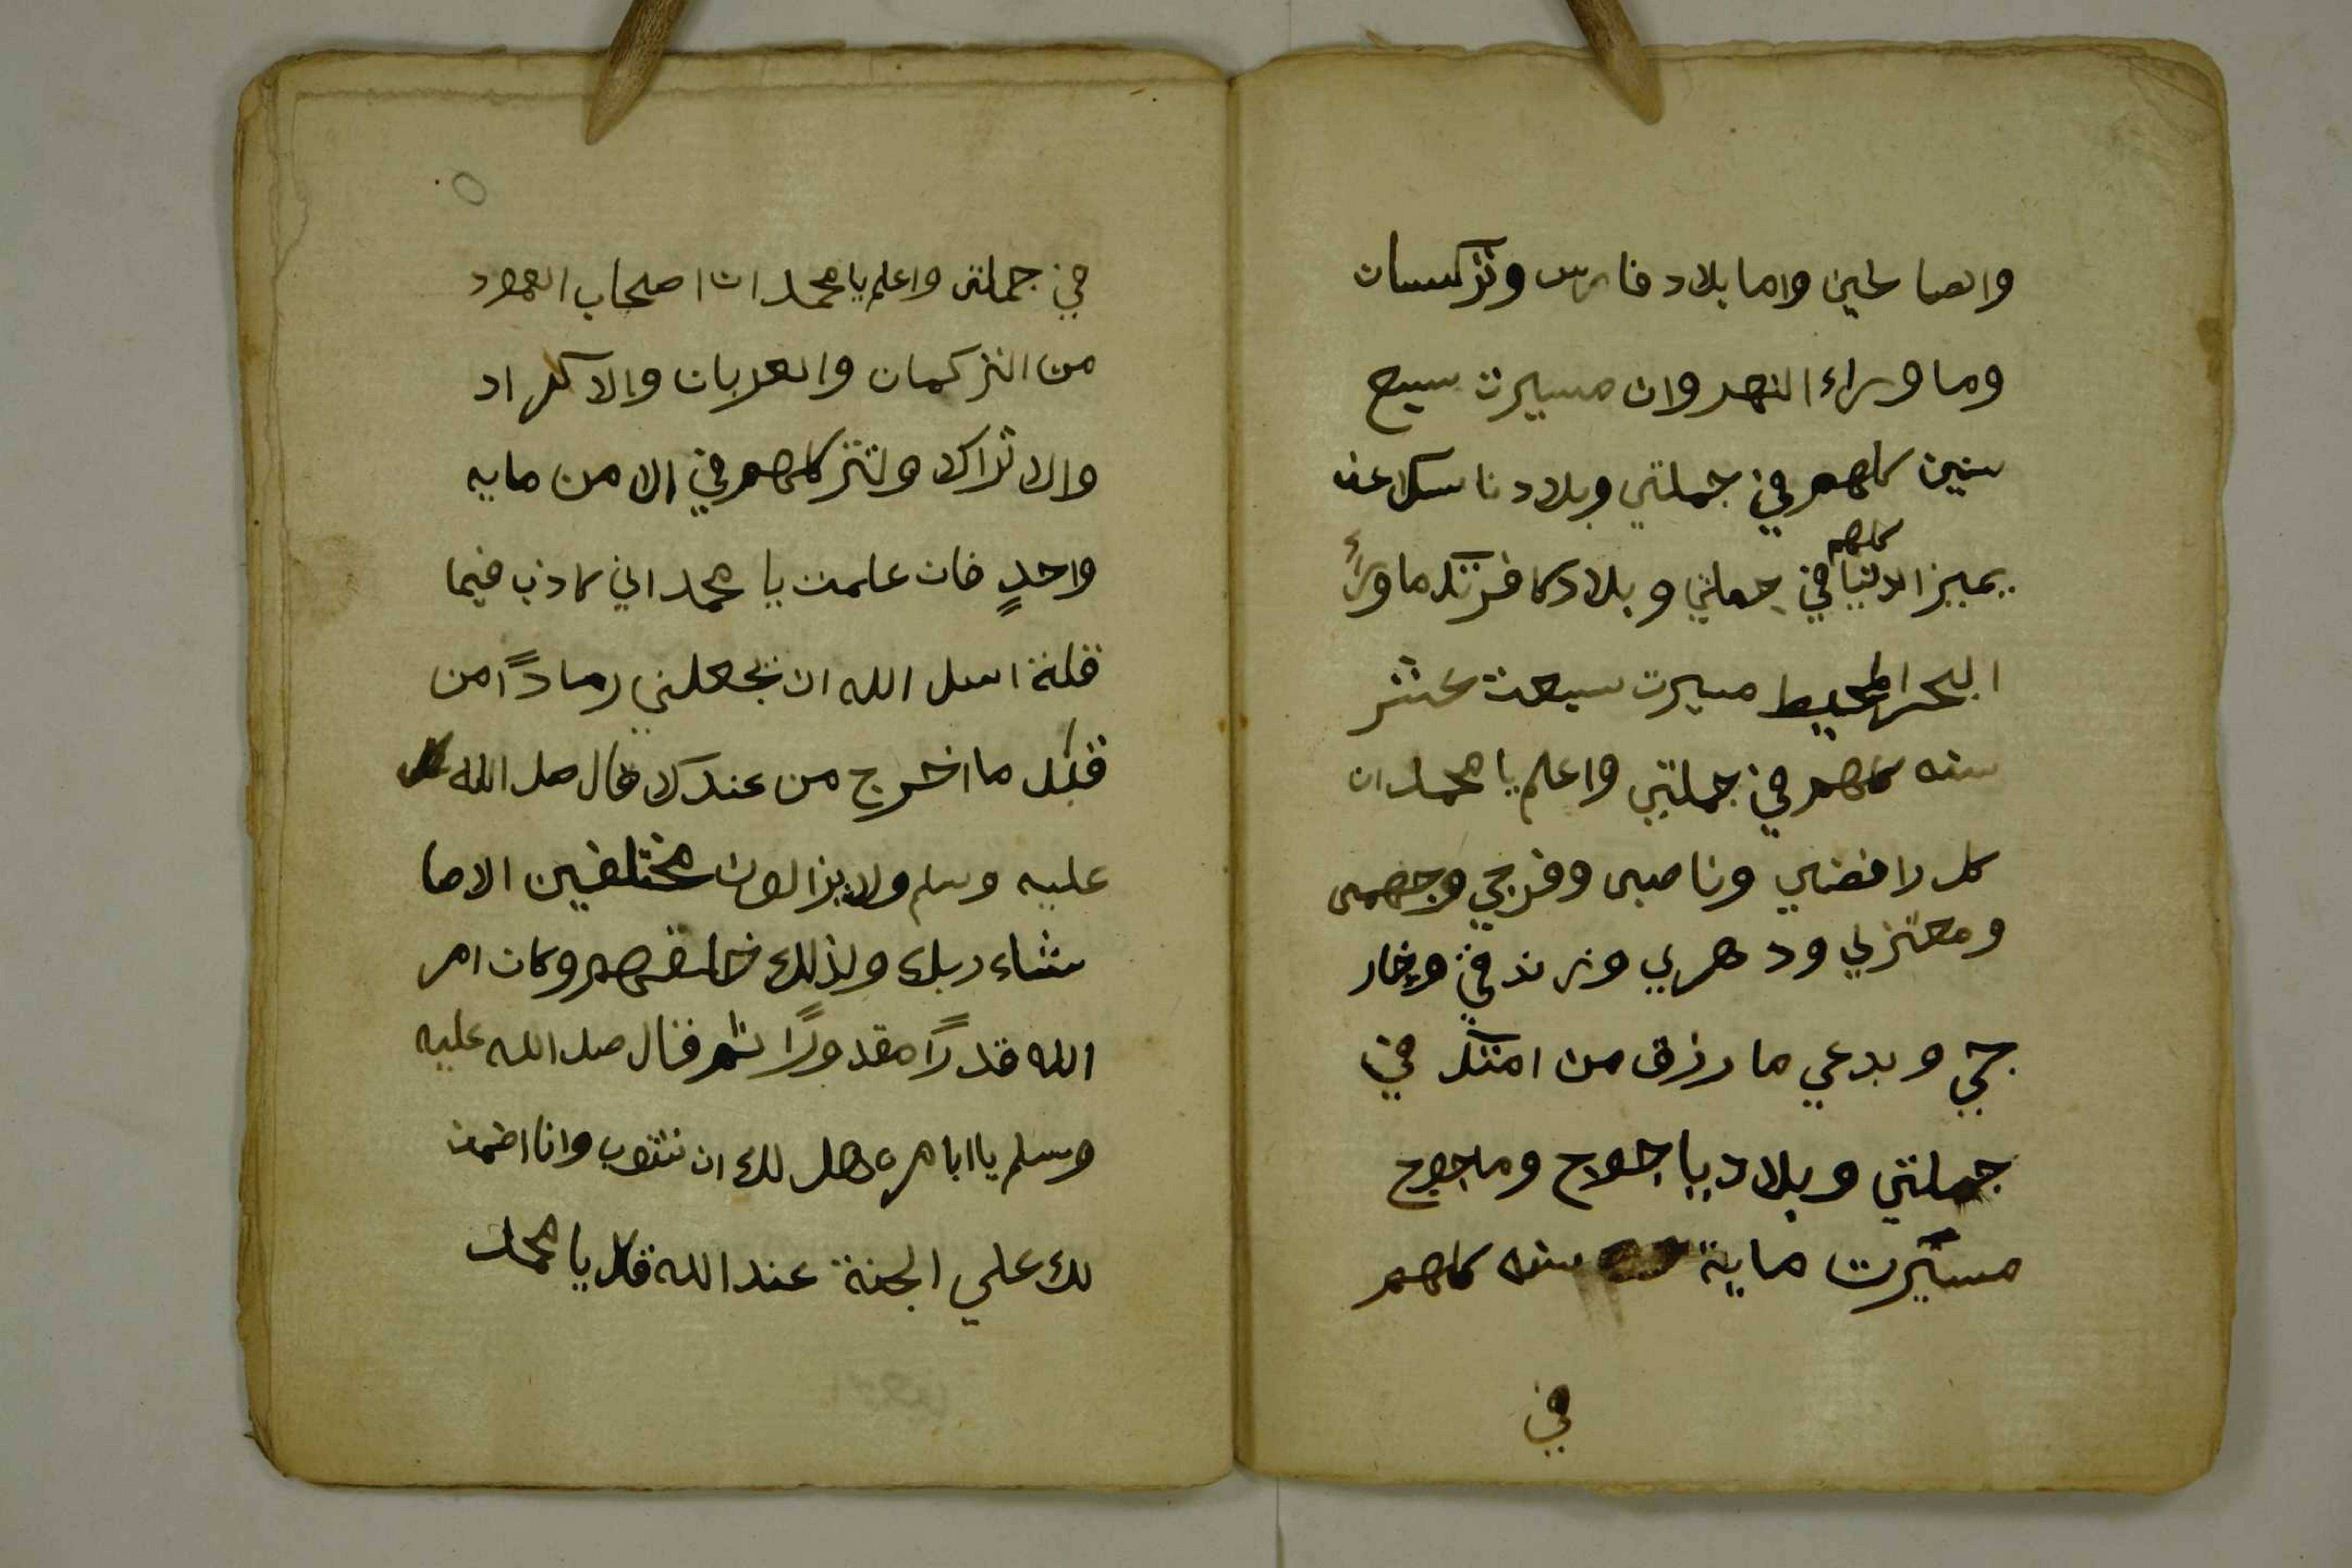 والصالحين واما بلاد فارس وتركسان
وما وراء النهروان مسيرت سبع
سنين كلهم في جملتي وبلاد ناسكل عن
يمين الدنيا كلهم في جملتي وبلاد كل فرتكد ما وراء
البحر المحيط مسيرت سبعت عشر
سنه كلهم في جملتي واعلم يا محمد ان
كل رافضي وناصبي وفرجي وجهمي
ومعتزلي ودهري وزندقي وخار
جي وبدعي ما رزق من امتك في
جملتي وبلاد ياجوج وماجوج
مسيرت ماية سنه كلهم
في
في جملتي واعلم يا محمد ان اصحاب العمود
من التركمان والعربان والاكراد
والاتراك ولتتر كلهم في الا من مايه
واحدٍ فان علمت يا محمد اني كاذب فيما
قلته اسل الله ان يجعلني رمادًا من
قبل ما اخرج من عندك قال صل الله
عليه وسلم ولا يزالون مختلفين الا ما
شاء ربك ولذلك خلقهم وكان امر
الله قدرًا مقدورًا ثم قال صل الله عليه
وسلم يا ابا مره هل لك ان تتوب وانا اضمن
لك علي الجنة عند الله قال يا محمد